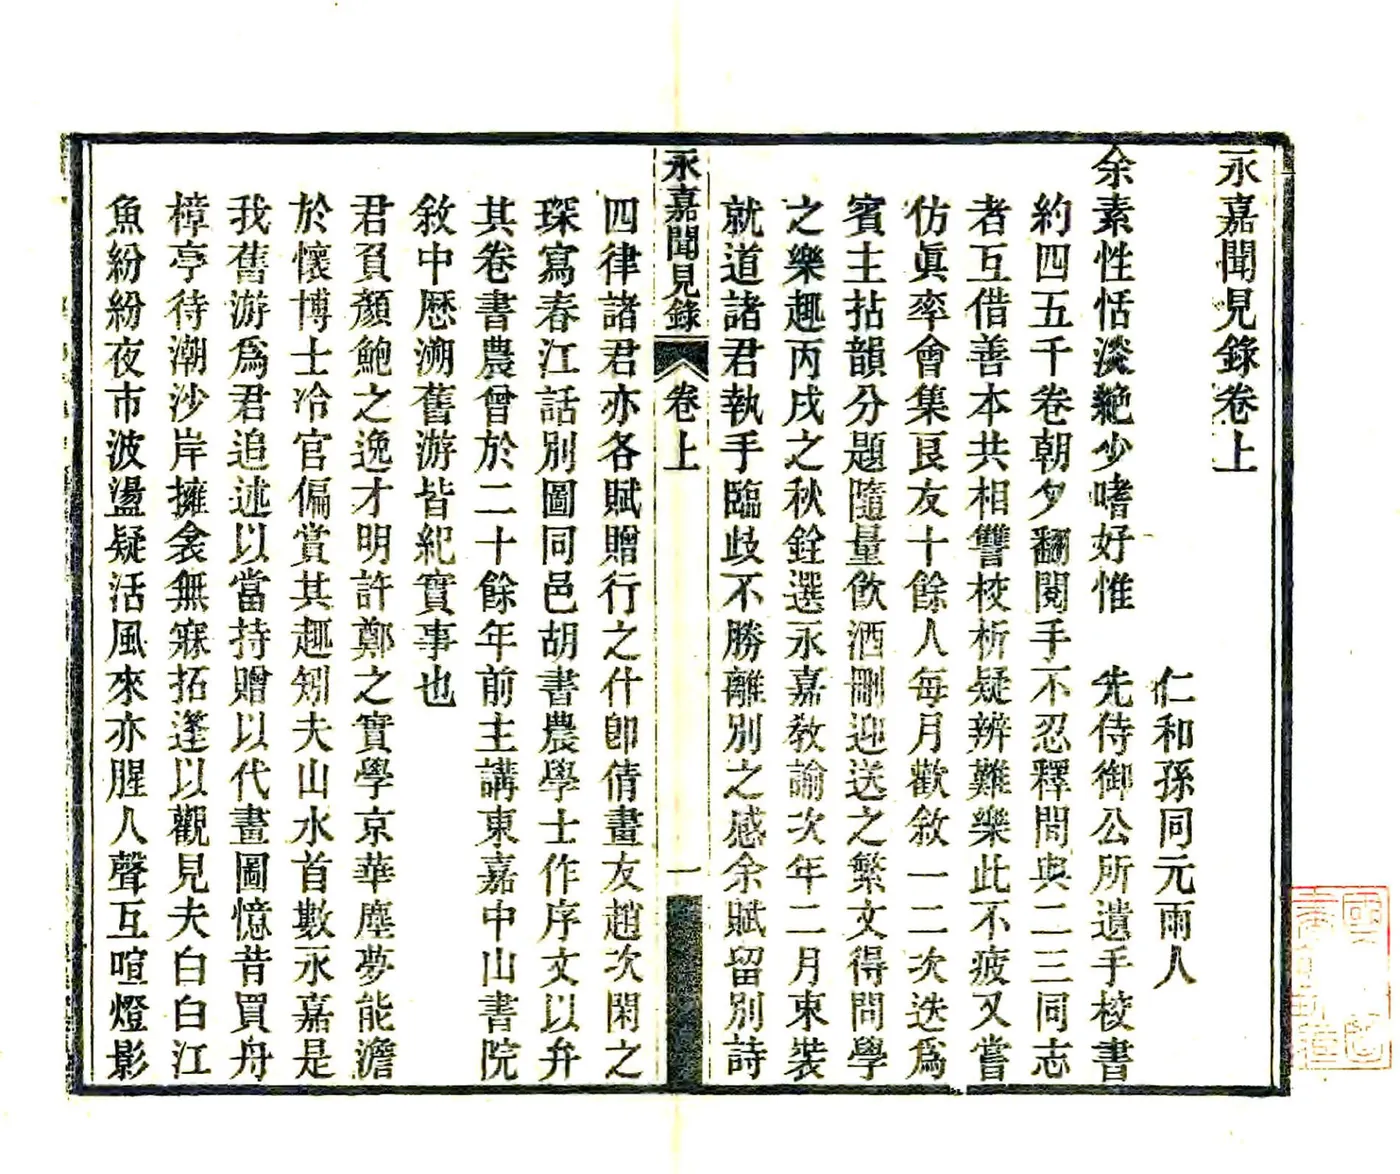 永嘉聞見錄卷上
仁和孫同元雨人
余素性恬淡絶少嗜好惟　先侍御公所遺手校書
約四五千卷朝夕翻閱手不忍釋閒與二三同志
者互借善本共相讐校析疑辨難樂此不疲又嘗
仿眞率會集良友十餘人每月歡敘一二次迭爲
賓主拈韻分題隨量飮酒刪迎送之繁文得問學
之樂趣丙戌之秋銓選永嘉敎諭次年二月東裝
就道諸君執手臨歧不勝離別之感余賦留別詩
永嘉聞見錄
卷上
一
四律諸君亦各賦贈行之什卽倩畫友趙次閑之
琛寫春江話別圖同邑胡書農學士作序文以弁
其卷書農曾於二十餘年前主講東嘉中山書院
敘中歴溯舊游皆紀實事也
君負顏鮑之逸才明許鄭之實學京華塵夢能澹
於懷博士冷官偏賞其趣矧夫山水首數永嘉是
我舊游爲君追述以當持贈以代畫圖憶昔買舟
樟亭待潮沙岸擁衾無寐拓篷以觀見夫白白江
魚紛紛夜市波盪疑活風來亦腥人聲互喧燈影